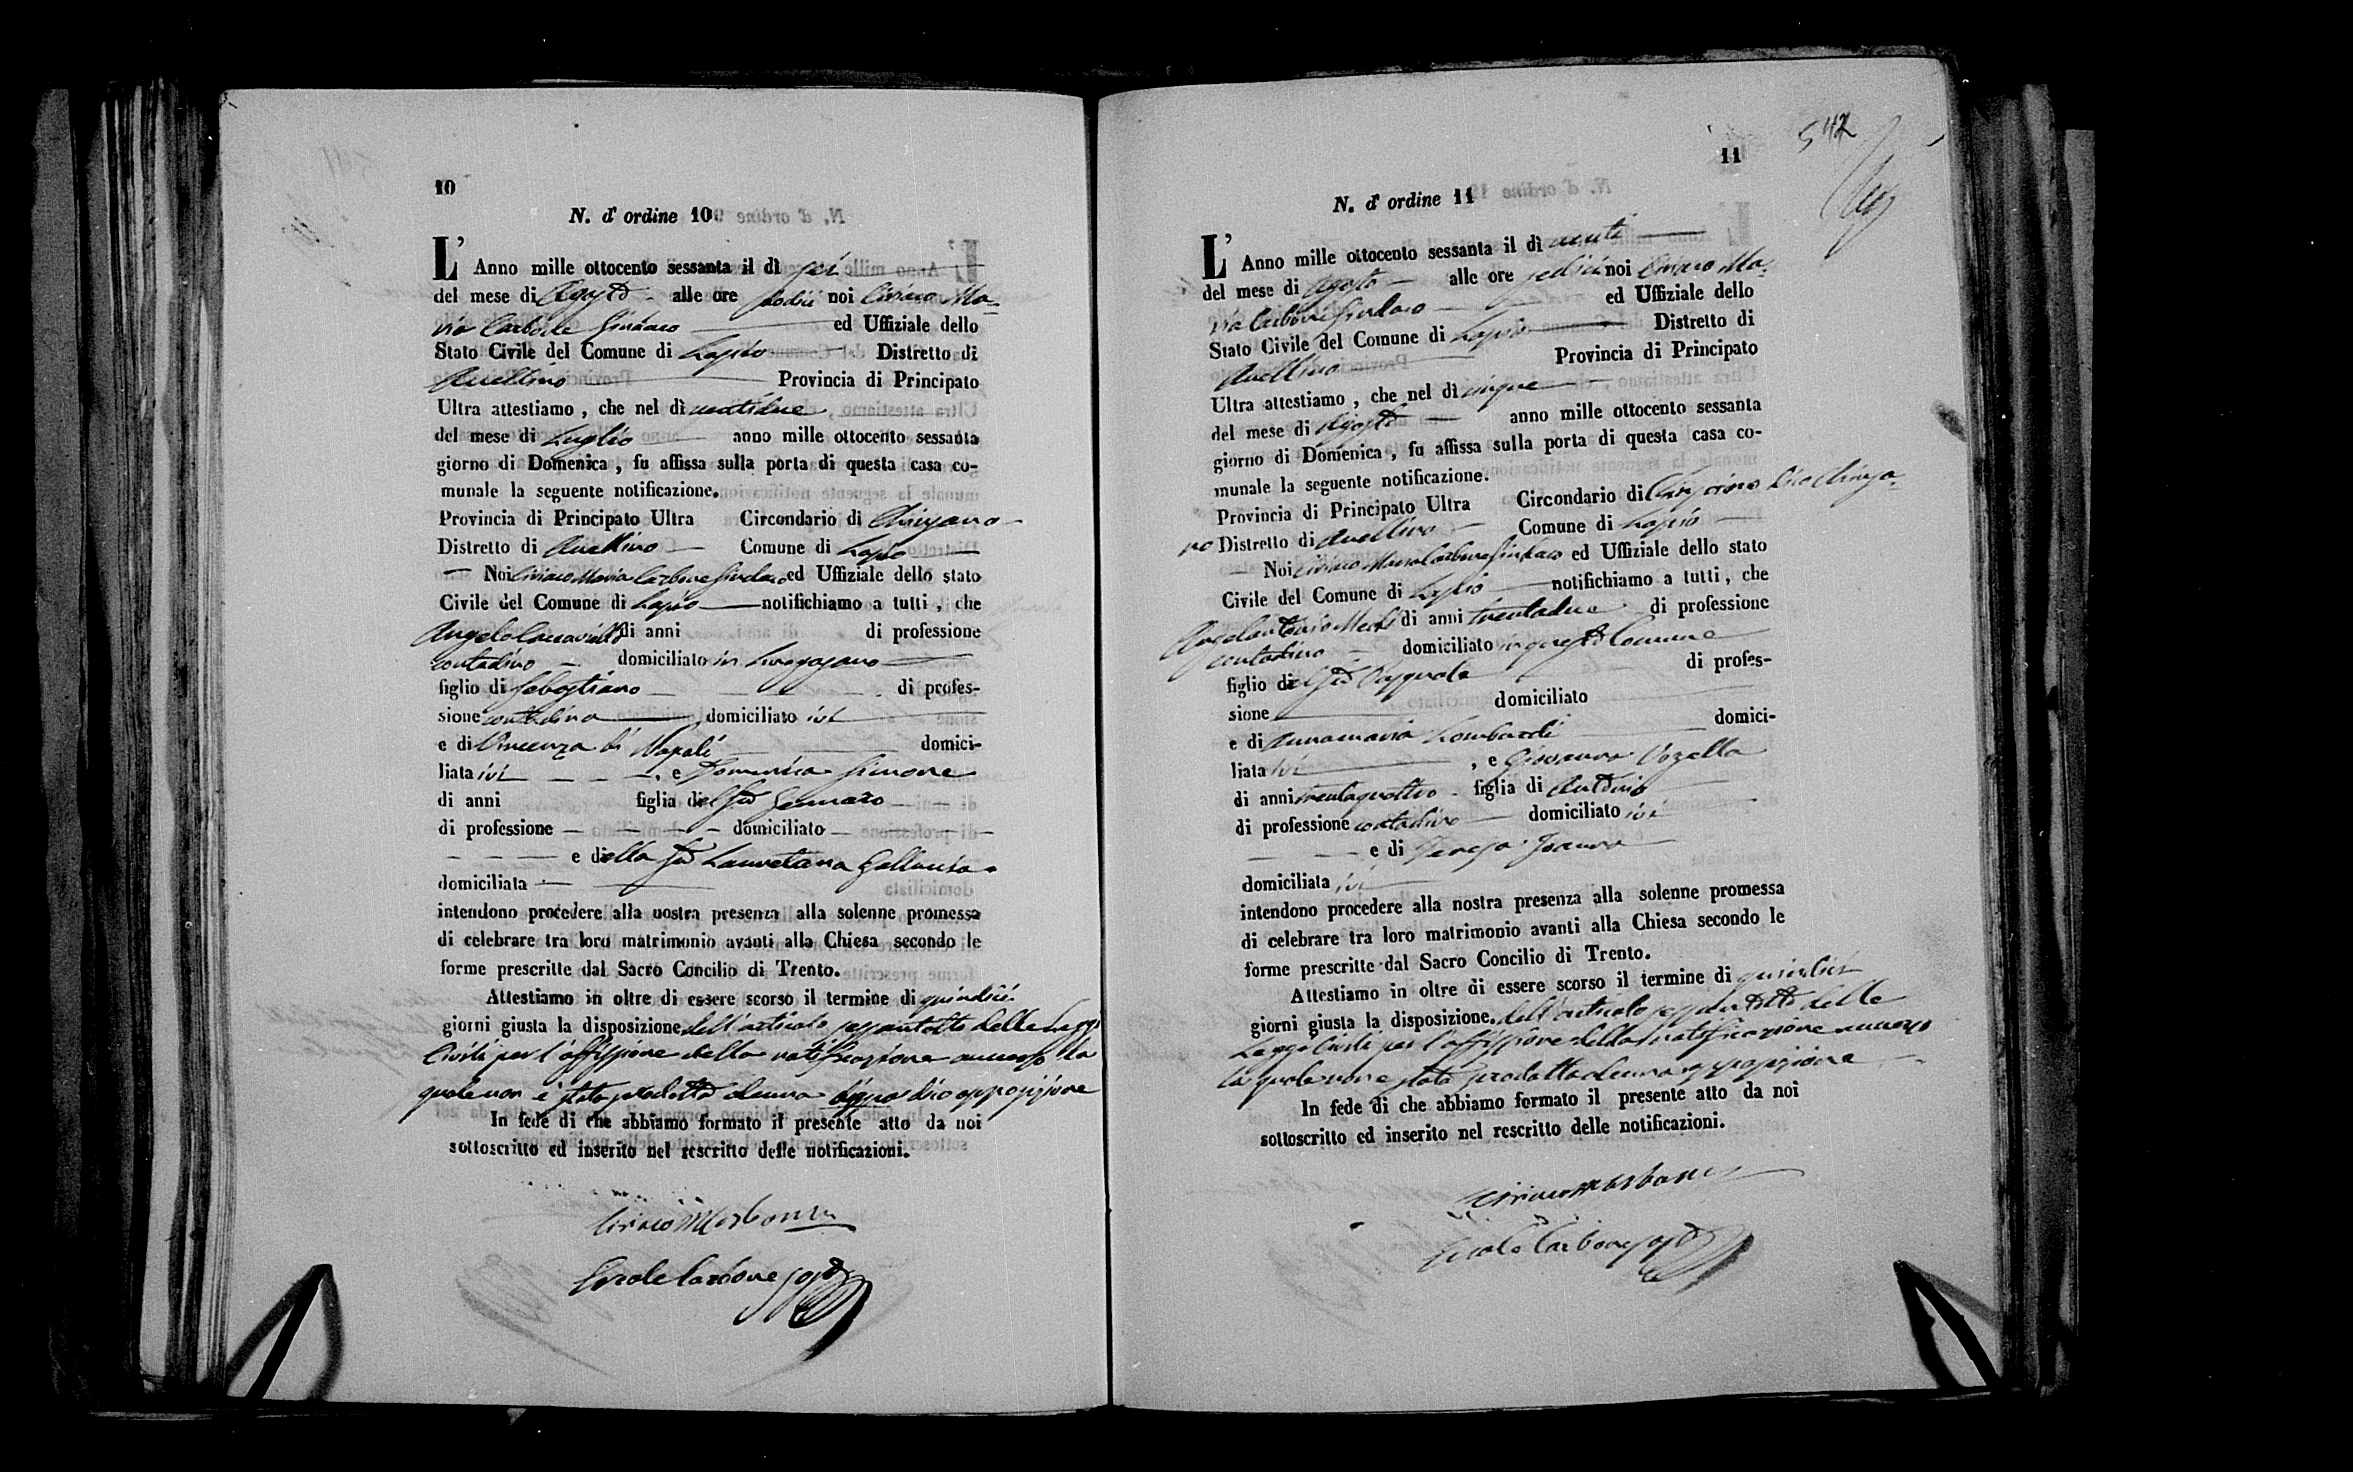 10
N. d' ordine 10
L' Anno mille ottocento sessanta il dì sei
del mese di Agosto alle ore sedici noi Ciriaco Ma=
ria Carbone Sindaco ed Uffiziale dello
Stato Civile del Comune di Lapio Distretto di
Avellino Provincia di Principato
Ultra attestiamo , che nel dì ventidue
del mese di Luglio anno mille ottocento sessanta
giorno di Domenica , fu affissa sulla porta di questa casa co-
munale la seguente notificazione.
Provincia di Principato Ultra Circondario di Chiusano
Distretto di Avellino Comune di Lapio
Noi Ciriaco Maria Carbone Sindaco ed Uffiziale dello stato
Civile del Comune di Lapio notifichiamo a tutti , che
Angelo di anni di professione
contadino domiciliato in Luogosano
figlio di Sebastiano di profes-
sione contadino domiciliato ivi
e di Vincenza di Napoli domici-
liata ivi , e Domenica Simone
di anni figlia del fu Gennaro
di professione domiciliato
e della fu Lauretana
domiciliata
intendono procedere alla nostra presenza alla solenne promessa
di celebrare tra loro matrimonio avanti alla Chiesa secondo le
forme prescritte dal Sacro Concilio di Trento.
Attestiamo in oltre di essere scorso il termine di quindici
giorni giusta la disposizione dell'articolo sessantotto delle Leggi
Civili per l'affissione della notificazione annessa la
quale non è stata prodotta alcuna opposizione
In fede di che abbiamo formato il presente atto da noi
sottoscritto ed inserito nel rescritto delle notificazioni.
Ciriaco M Carbone
Ercole Carbone
11
542
N. d' ordine 11
L' Anno mille ottocento sessanta il dì venti
del mese di Agosto alle ore sedici noi Ciriaco Ma=
ria Carbone Sindaco ed Uffiziale dello
Stato Civile del Comune di Lapio Distretto di
Avellino Provincia di Principato
Ultra attestiamo , che nel dì cinque
del mese di Agosto anno mille ottocento sessanta
giorno di Domenica , fu affissa sulla porta di questa casa co-
munale la seguente notificazione.
Provincia di Principato Ultra Circondario di Chiusano
Distretto di Avellino Comune di Lapio
Noi Ciriaco Maria Carbone Sindaco ed Uffiziale dello stato
Civile del Comune di Lapio notifichiamo a tutti , che
Angelantonio di anni trentadue di professione
contadino domiciliato in questo Comune
figlio del fu Pasquale di profes-
sione domiciliato
e di Annamaria Lombardi domici-
liata ivi , e Giovanna Vozella
di anni trentaquattro figlia di Antonio
di professione contadino domiciliato ivi
e di Teresa
domiciliata ivi
intendono procedere alla nostra presenza alla solenne promessa
di celebrare tra loro matrimonio avanti alla Chiesa secondo le
forme prescritte dal Sacro Concilio di Trento.
Attestiamo in oltre di essere scorso il termine di quindici
giorni giusta la disposizione dell'articolo sessantotto delle
Leggi Civili per l'affissione della notificazione annessa
la quale non è stata prodotta alcuna opposizione
In fede di che abbiamo formato il presente atto da noi
sottoscritto ed inserito nel rescritto delle notificazioni.
Ciriaco M Carbone
Ercole Carbone